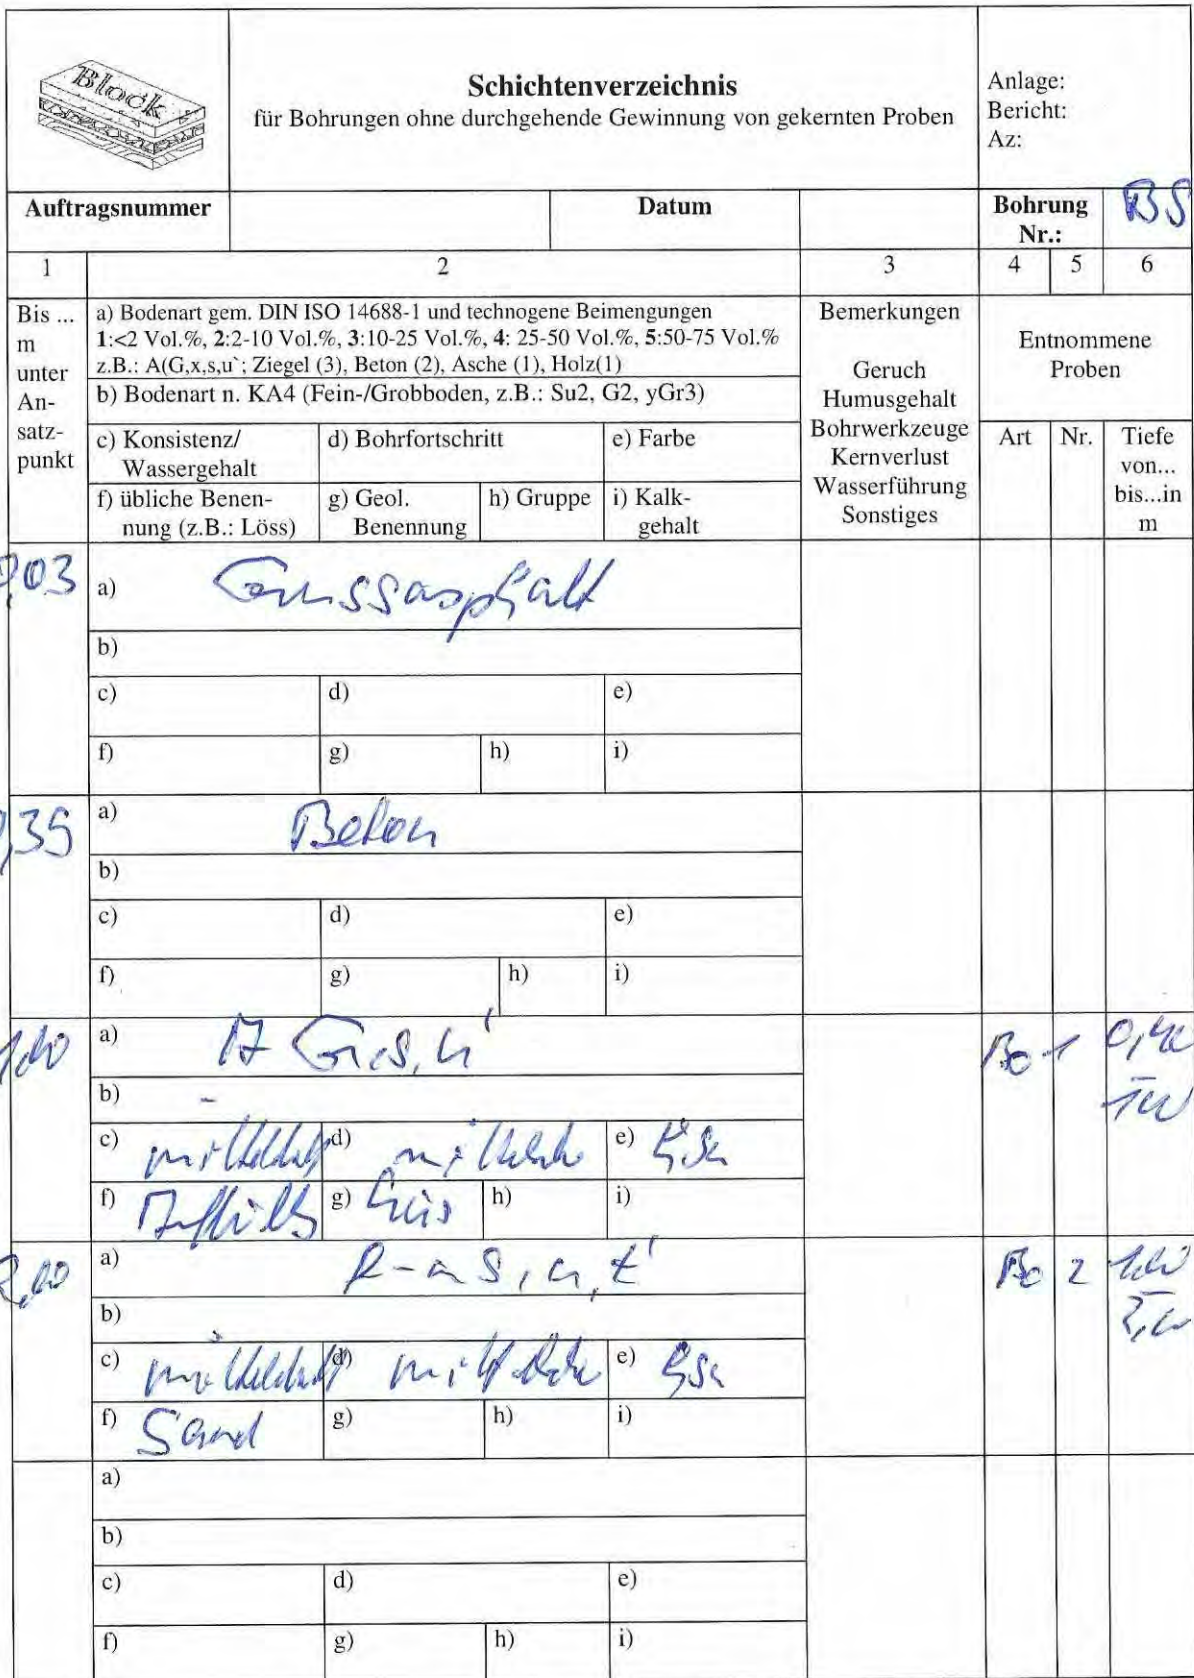 Block
Schichtenverzeichnis
für Bohrungen ohne durchgehende Gewinnung von gekernten Proben
Anlage:
Bericht:
Az:
Auftragsnummer
Datum
Bohrung
Nr.:
BS
1
2
3
4
5
6
Bis ...
m
unter
An-
satz-
punkt
a) Bodenart gem. DIN ISO 14688-1 und technogene Beimengungen
1:<2 Vol.%, 2:2-10 Vol.%, 3:10-25 Vol.%, 4: 25-50 Vol.%, 5:50-75 Vol.%
z.B.: A(G,x,s,u`; Ziegel (3), Beton (2), Asche (1), Holz(1)
b) Bodenart n. KA4 (Fein-/Grobboden, z.B.: Su2, G2, yGr3)
c) Konsistenz/
Wassergehalt
d) Bohrfortschritt
e) Farbe
f) übliche Benen-
nung (z.B.: Löss)
g) Geol.
Benennung
h) Gruppe
i) Kalk-
gehalt
Bemerkungen
Geruch
Humusgehalt
Bohrwerkzeuge
Kernverlust
Wasserführung
Sonstiges
Entnommene
Proben
Art
Nr.
Tiefe
von...
bis...in
m
0,03
a) Gussasphalt
b)
c)
d)
e)
f)
g)
h)
i)
0,35
a) Beton
b)
c)
d)
e)
f)
g)
h)
i)
1,00
a)
b) -
c)
d)
e)
f)
g)
h)
i)
Bo
1
0,40
- 1,00
2,00
a)
b)
c)
d)
e)
f) Sand
g)
h)
i)
Bo
2
1,00
- 2,00
a)
b)
c)
d)
e)
f)
g)
h)
i)